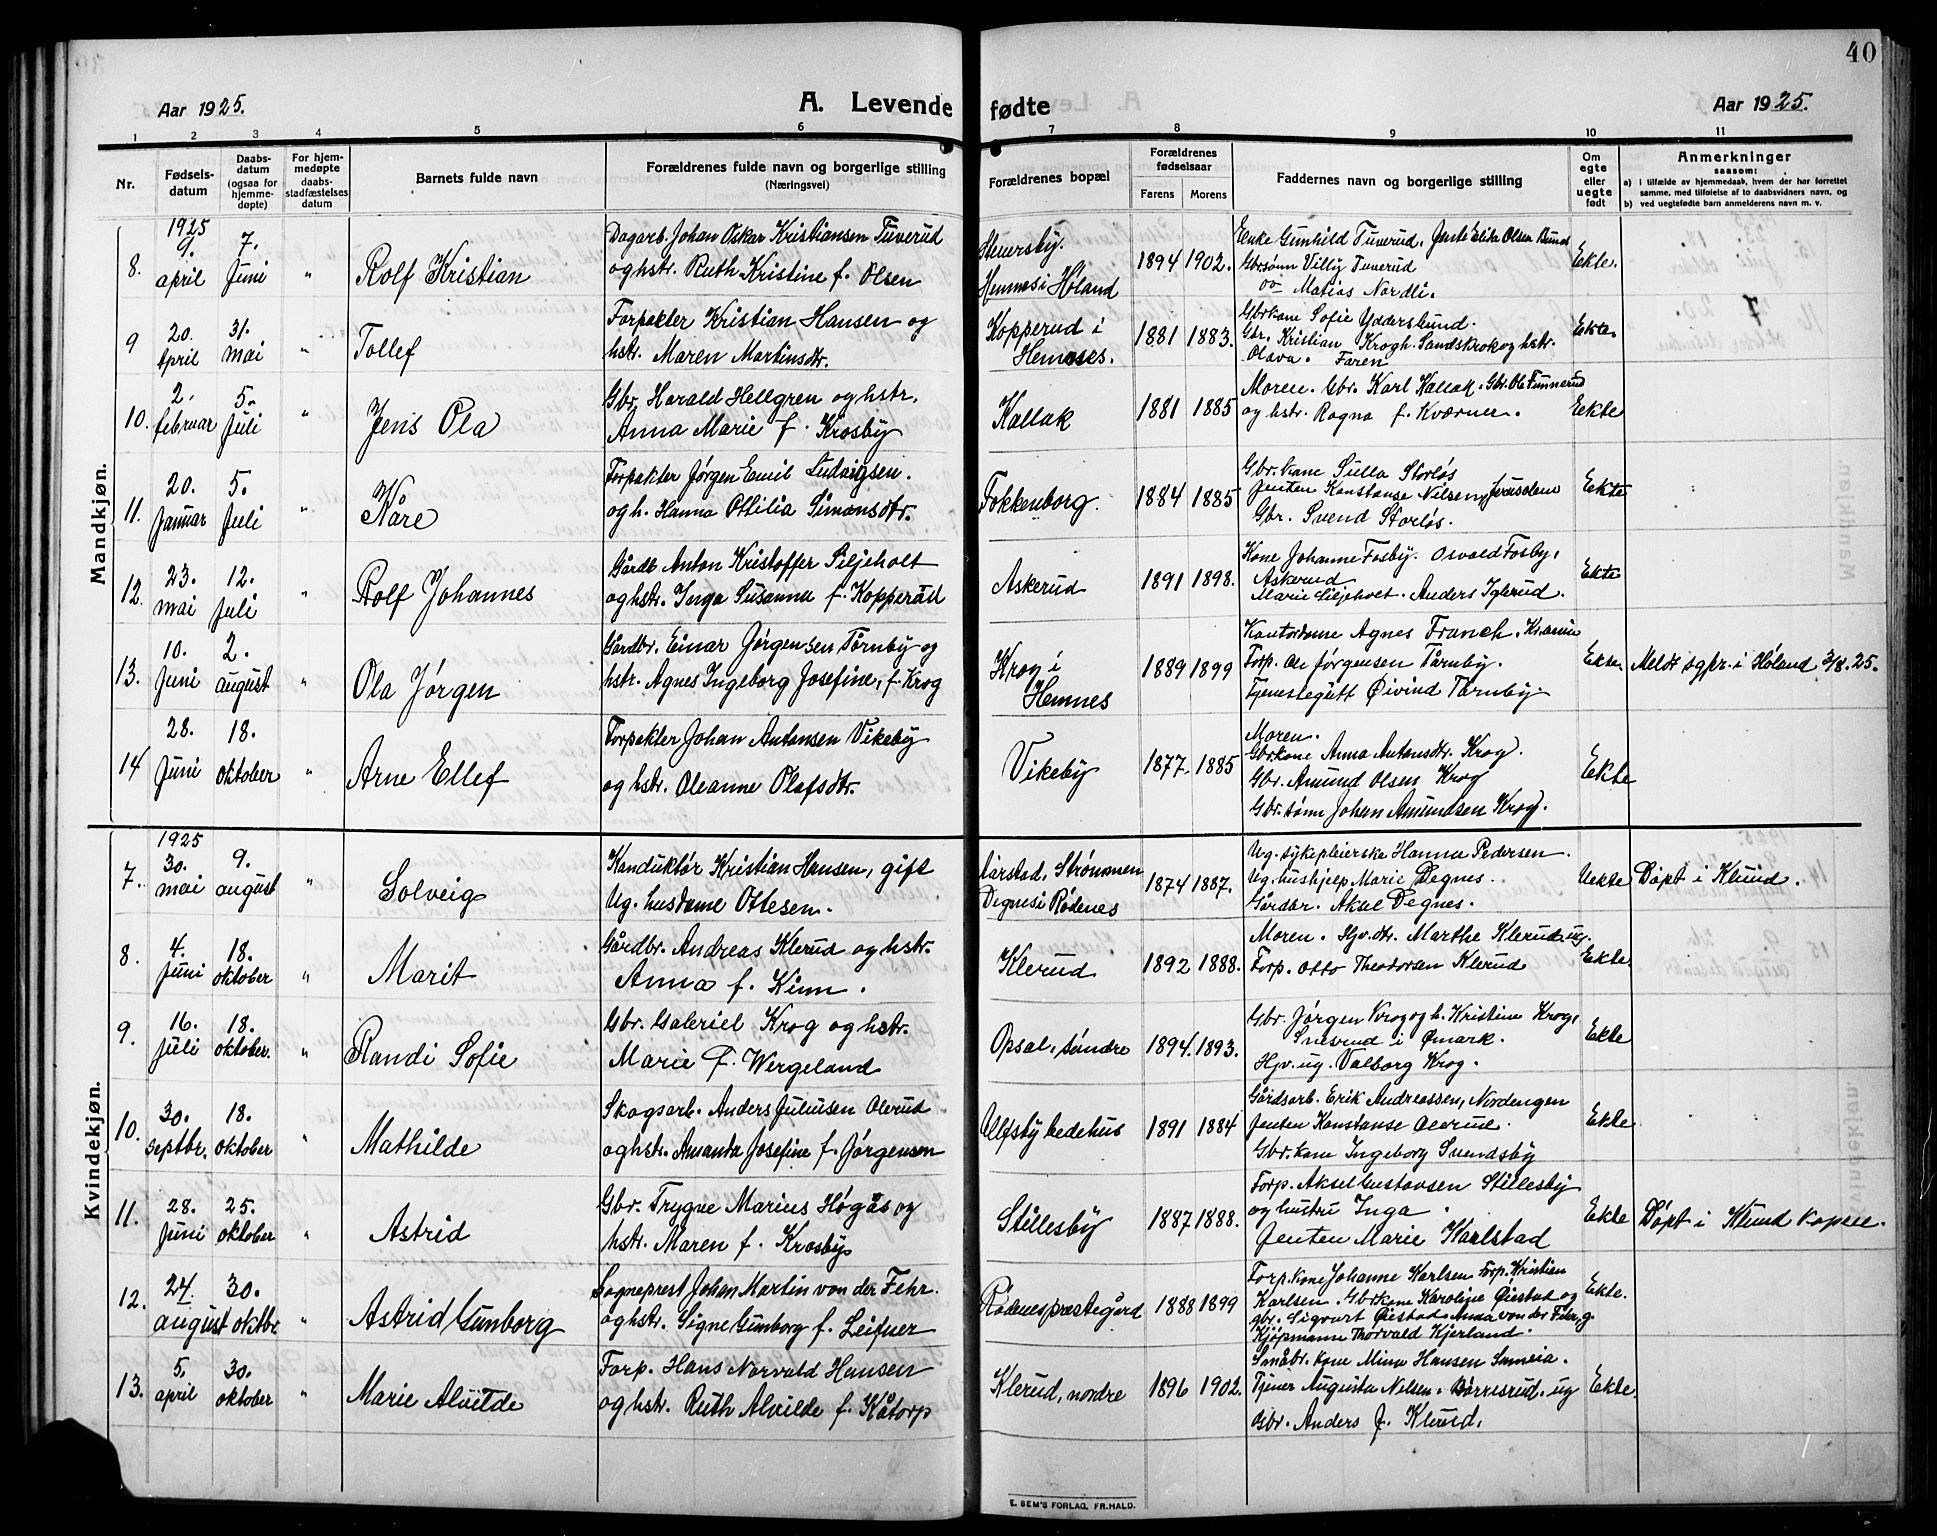 40
Aar 1925.
A. Levende fødte
Aar 1925.
1 2 3 4 5 6 7 8 9 10 11
Nr.
Fødsels-
datum
Daabs-
datum
(ogsaa for
hjemme-
døpte)
For hjem-
medøpte
daabs-
stadfæstelses
datum
Barnets fulde navn
Forældrenes fulde navn og borgerlige stilling
(Næringsvei)
Forældrenes bopæl
Forældrenes
fødselsaar
Farens Morens
Faddernes navn og borgerlige stilling
Om
egte
eller
uegte
født
Anmerkninger
saasom:
a) i tilfælde av hjemmedaab, hvem der har forrettet
samme, med tilføielse af to daabsvidners navn, og
b) ved uegtefødte barn anmelderens navn m. v.
Mandkjøn.
1925
8. 9. april 7. Juni " Rolf Kristian
Dagarb. Johan Oskar Kristiansen Tuverud
og hstr. Ruth Kristine f. Olsen
Hemnes i Høland
1894 1902.
Enke Gunhild Tuverud. Jente Elida Olsen
Gbrsønn Villy Tuverud
Matias Nordli.
Ekte.
9 20. April 31. mai " Tollef
Forpakter Kristian Hansen og
hstr. Maren Martinsdtr.
Kopperud i
Hemnes.
1881 1883.
Gbrkone Sofie Ydderslund.
Gbr. Kristian Krogh. Sandskrok og hstr.
Olava. Faren
Ekte.
10. 2. februar 5. Juli " Jens Ola
Gbr. Harald Hellgren og hstr.
Anna Marie f. Krosby
Kallak
1881 1885
Moren. Gbr. Karl Kallak. Gbr. Ole Funnerud
og hstr. Ragna f. Kværner.
Eekte
11. 20. Januar 5. Juli " Kåre
Forpakter Jørgen Emil Ludvigsen.
og h. Hanna Ottilia Simensdtr.
Fokkenborg.
1884 1885
Gbr. kone Sulla Storløs
Jenten Konstanse Nilsen, Jerusalem
Gbr. Svend Storløs.
Eekte
12. 23. mai 12. Juli " Rolf Johannes
Gårdb. Anton Kristoffer Siljeholt
og hstr. Inga Susanna f. Kopperud
Askerud
1891 1898.
Kone Johanne Fosby. Osvald Fosby,
Askerud
Marie Siljeholt. Anders Iglerud.
Ekte
13. 10. Juni 2. august " Ola Jørgen
Gårdbr. Einar Jørgensen Tørnby og
hstr. Agnes Ingeborg Josefine, f. Krog
Krog i
Hemnes
1889 1899
Kontordame Agnes Franch.
Forp. Ole Jørgensen Tårnby.
Tjenestegutt Øivind Tårnby
Ekte. Meldt sgpr. i Høland 3/8. 25.
14 28. Juni 18. oktober " Arne Ellef
Forpakter Johan Antonsen Vikeby
og hstr. Oleanne Olafsdtr.
Vikeby
1877. 1885
Moren.
Gbrkone Anna Antonsdtr. Krog.
Gbr. Amund Olsen Krog
Gbr. sønn Johan Amundsen Krog.
Eekte
Kvindekjøn.
1925
7. 30. mai 9. august " Solveig
Konduktør Kristian Hansen, gift
Ug. husdame Ottesen.
Aarstad, Strømmen
Degnes i Rødenes
1874 1887.
Ug. sykepleierske Hanna Pedersen.
Ug. hushjelp Marie Degnes.
Gårdbr. Aksel Degnes.
Uekte Døpt i Klund.
8. 4. Juni 18. oktober " Marit
Gårdbr. Andreas Klerud og hstr.
Anna f. Kinn.
Klerud
1892 1888.
Moren. Hjv. dtr. Marthe Klerud ug.
Forp. Otto Theodorsen Klerud
Eekte.
9. 16. Juli 18. oktober. " Randi Sofie
Gbr. Gabriel Krog og hstr.
Marie f. Wergeland
Opsal, søndre
1894. 1893.
Gbr. Jørgen Krog og h. Kristine Krog,
i Ømark.
Hjv. ug. Valborg Krog.
Eekte
10. 30. septbr. 18. oktober " Mathilde
Skogsarb. Anders Juliusen Olerud
og hstr. Amanda Josefine f. Jørgensen
Ulfsby bedehus
1891 1884
Gårdsarb. Erik Andreassen, Nordengen
Jenten Konstanse Olerud.
Gbr. kone Ingeborg Svendsby
Ekte
11. 28. Juni 25. oktober " Astrid
Gbr. Trygve Marius Høgås og
hstr. Maren f. Krosby
Stillesby
1887 1888.
Forp. Aksel Gustavsen Stillesby
og hustru Inga.
Jenten Marie Karlstad
Ekte Døpt i Klund kapell.
12. 24. august 30. oktbr. " Astrid Gunborg
Sogneprest Johan Martin von der Fehr.
og hstr. Signe Gunborg f. Leifner
Rødenes præstegård
1888 1899
Forp. kone Johanne Karlsen Forp. Kristian
Karlsen. Gbrkone Karoline Øiestad og
gbr. Sigvart Øiestad. Anna von der Fehr, g.
Kjøpmann Thorvald Kjerland.
Ekte.
13. 5. april 30. oktober " Marie Alvilde
Forp. Hans Norvald Hansen
og hstr. Ruth Alvilde f. Kåtorp
Klerud, nordre
1896 1902.
Småbr. kone Mina Hansen
Tjener Augusta Nilsen. Børresrud. ug
Gbr. Anders f. Klerud.
Ekte.
E. SEM'S FORLAG, FR.HALD.